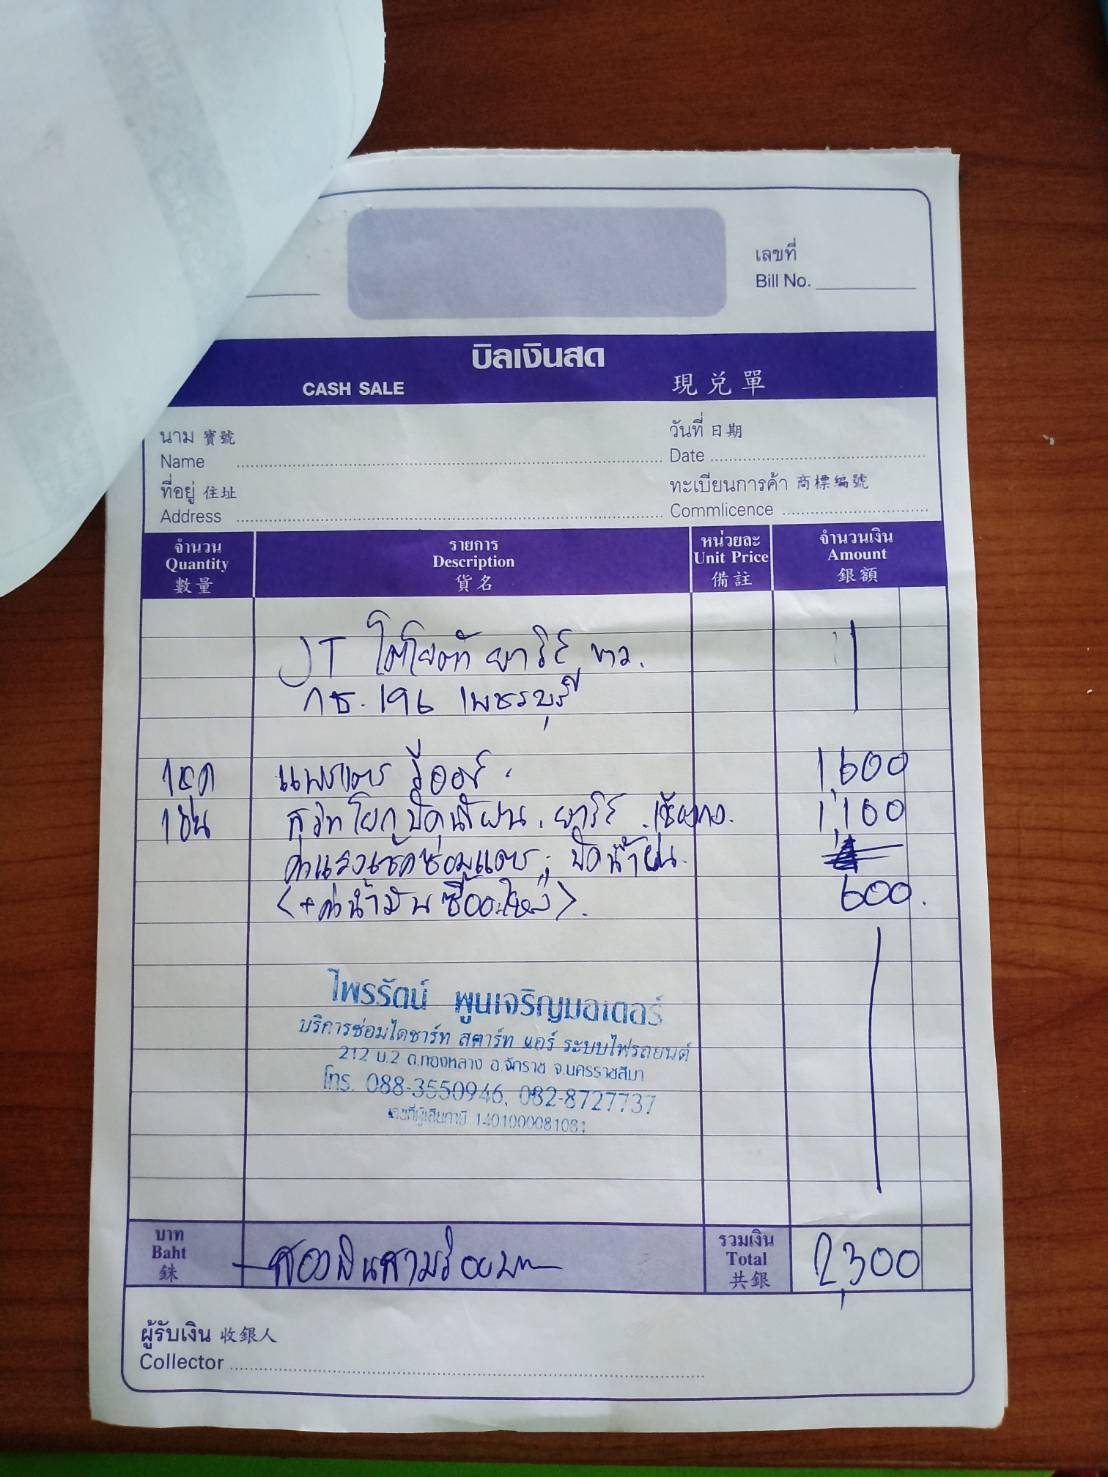 เลขที่
Bill No.
บิลเงินสด
CASH SALE 現兌單
นาม 寶號
Name
วันที่ 日期
Date
ที่อยู่ 住址
Address
ทะเบียนการค้า 商標編號
Commlicence
จำนวน
Quantity
數量
รายการ
Description
貨名
หน่วยละ
Unit Price
備註
จำนวนเงิน
Amount
銀額
JT โตโยต้า ยาริส ขาว.
กธ.196 เพชรบุรี
1ชุด แพงแตร รีออร์. 1,600
1ชิ้น สวิทโยกปัดน้ำฝน. ยาริส. 1,100
ค่าแรงเช็คซ่อมแตร; ปัดน้ำฝน.
(+ค่าน้ำมันซื้ออะไหล่). 600.
ไพรรัตน์ พูนเจริญมอเตอร์
บริการซ่อมไดชาร์ท สตาร์ท แอร์ ระบบไฟรถยนต์
212 ม.2 ต.ทองหลาง อ.จักราช จ.นครราชสีมา
โทร. 088-3550946, 082-8727737
บาท
Baht
銖
สองพันสามร้อยบาท
รวมเงิน
Total
共銀
2,300
ผู้รับเงิน 收銀人
Collector